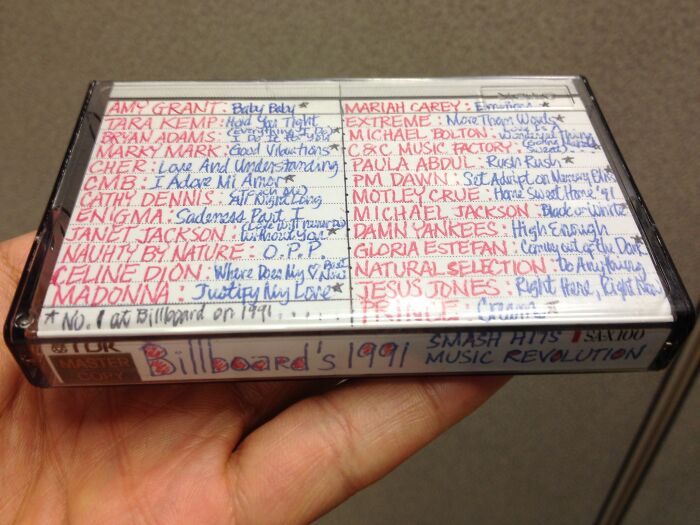 AMY GRANT: Baby Baby *
TARA KEMP: Hold You Tight
BRYAN ADAMS: (Everything I Do) I Do It For You *
MARKY MARK: Good Vibrations *
CHER: Love And Understanding
CMB: I Adore Mi Amor *
CATHY DENNIS: (Touch Me) All Night Long
ENIGMA: Sadeness Part I
JANET JACKSON: (Love Will Never Do) Without You *
NAUHTY BY NATURE: O.P.P
CELINE DION: Where Does My ♡ Beat Now
MADONNA: Justify My Love *
* No. 1 at Billboard on 1991....
MARIAH CAREY: Emotions *
EXTREME: More Than Words *
MICHAEL BOLTON: Love Is a Wonderful Thing
C&C MUSIC FACTORY: (Gonna Make You Sweat) *
PAULA ABDUL: Rush Rush *
PM DAWN: Set Adrift on Memory Bliss *
MOTLEY CRUE: Home Sweet Home '91
MICHAEL JACKSON: Black or White *
DAMN YANKEES: High Enough
GLORIA ESTEFAN: Coming out of the Dark *
NATURAL SELECTION: Do Anything
JESUS JONES: Right Here, Right Now
PRINCE: Cream *
TDK
MASTER COPY
Billboard's 1991
SMASH HITS
MUSIC REVOLUTION
SAX100